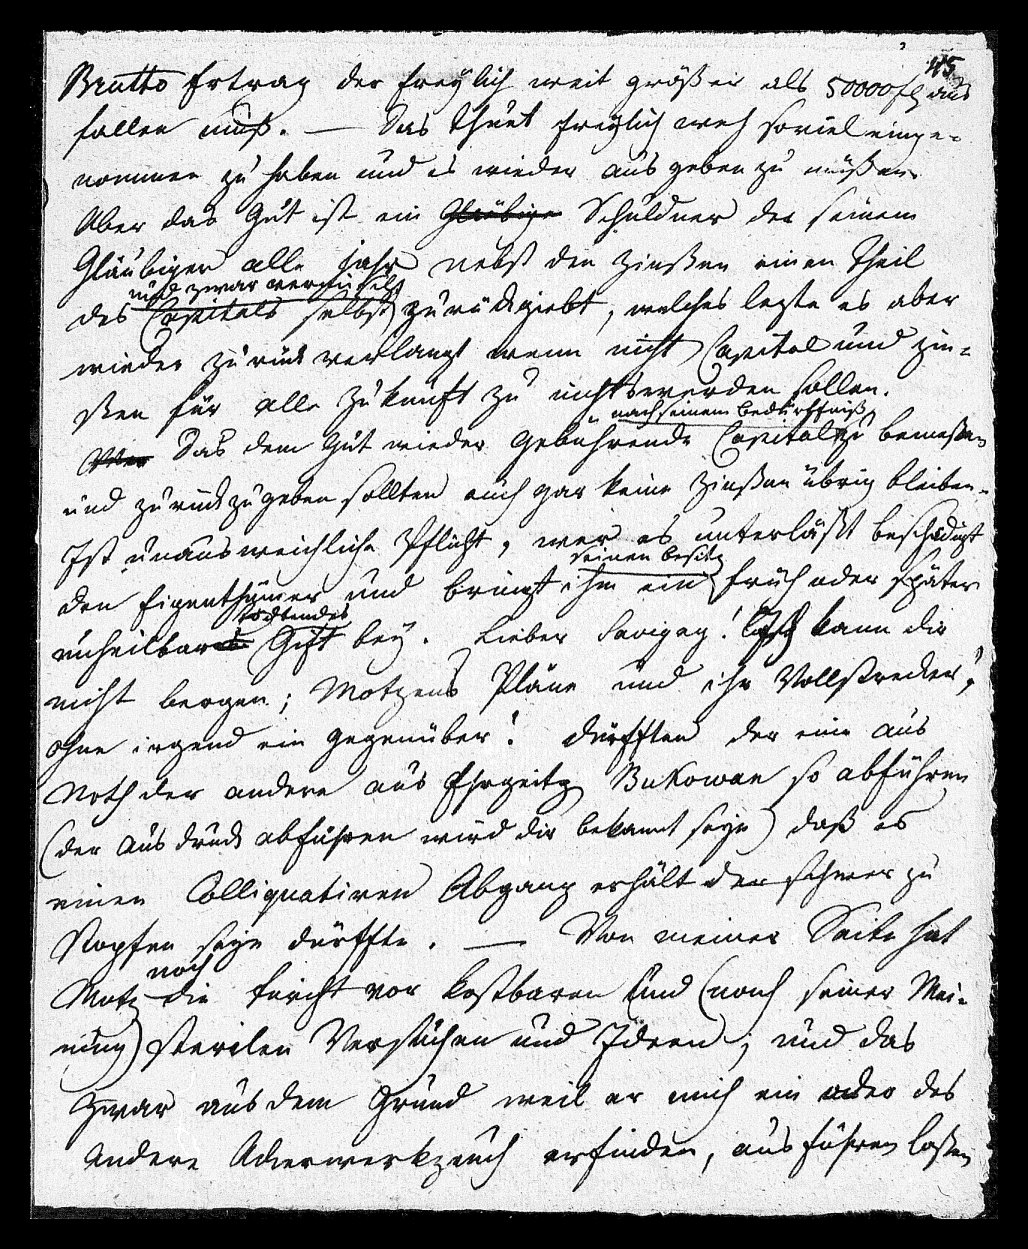 45
Brutto Ertrag der freylich weit größer als 50000 fl aus
fallen muß. — Das thuet freylich weh soviel einge-
nommen zu haben und es wieder aus geben zu müßen.
Aber das Gut ist ein Gläubige Schuldner der seinem
Gläubiger alle Jahr nebst den Zinßen einen Theil
und zwar
des Capitals selbst zurückgiebt, welches lezte es aber
wieder zurück verlangt wenn nicht Capital und Zin-
ßen für alle Zukunft zu nichts werden sollen.
nach seinem Bedürffniß
Das dem Gut wieder gebührende Capital zu bemeßen
und zurückzugeben sollten auch gar keine Zinßen übrig bleiben.
Ist unausweichliche Pflicht, wer es unterläßt beschädigt
seinen Besitz
den Eigenthümer und bringt ihm ein früh oder später
tödtendes
unheilbar Gift bey. Lieber ! Ich kann dir
nicht bergen; Motzens Pläne und ihr Vollstrecker,
ohne irgend ein Gegenüber! dürfften der eine aus
Noth der andere aus Ehrgeitz Bukowan so abführen
(der Ausdruck abführen wird dir bekannt seyn) daß es
einen Colliquativen Abgang erhält der schwer zu
Stopfen seyn dürffte. — Von meiner Seite hat
noch
Motz die Furcht vor kostbaren Und (nach seiner Mei-
nung) sterilen Versuchen und Ideen; und das
zwar aus dem Grund weil er mich ein oder des
andere Ackerwerkzeuch erfinden, ausführen laßen